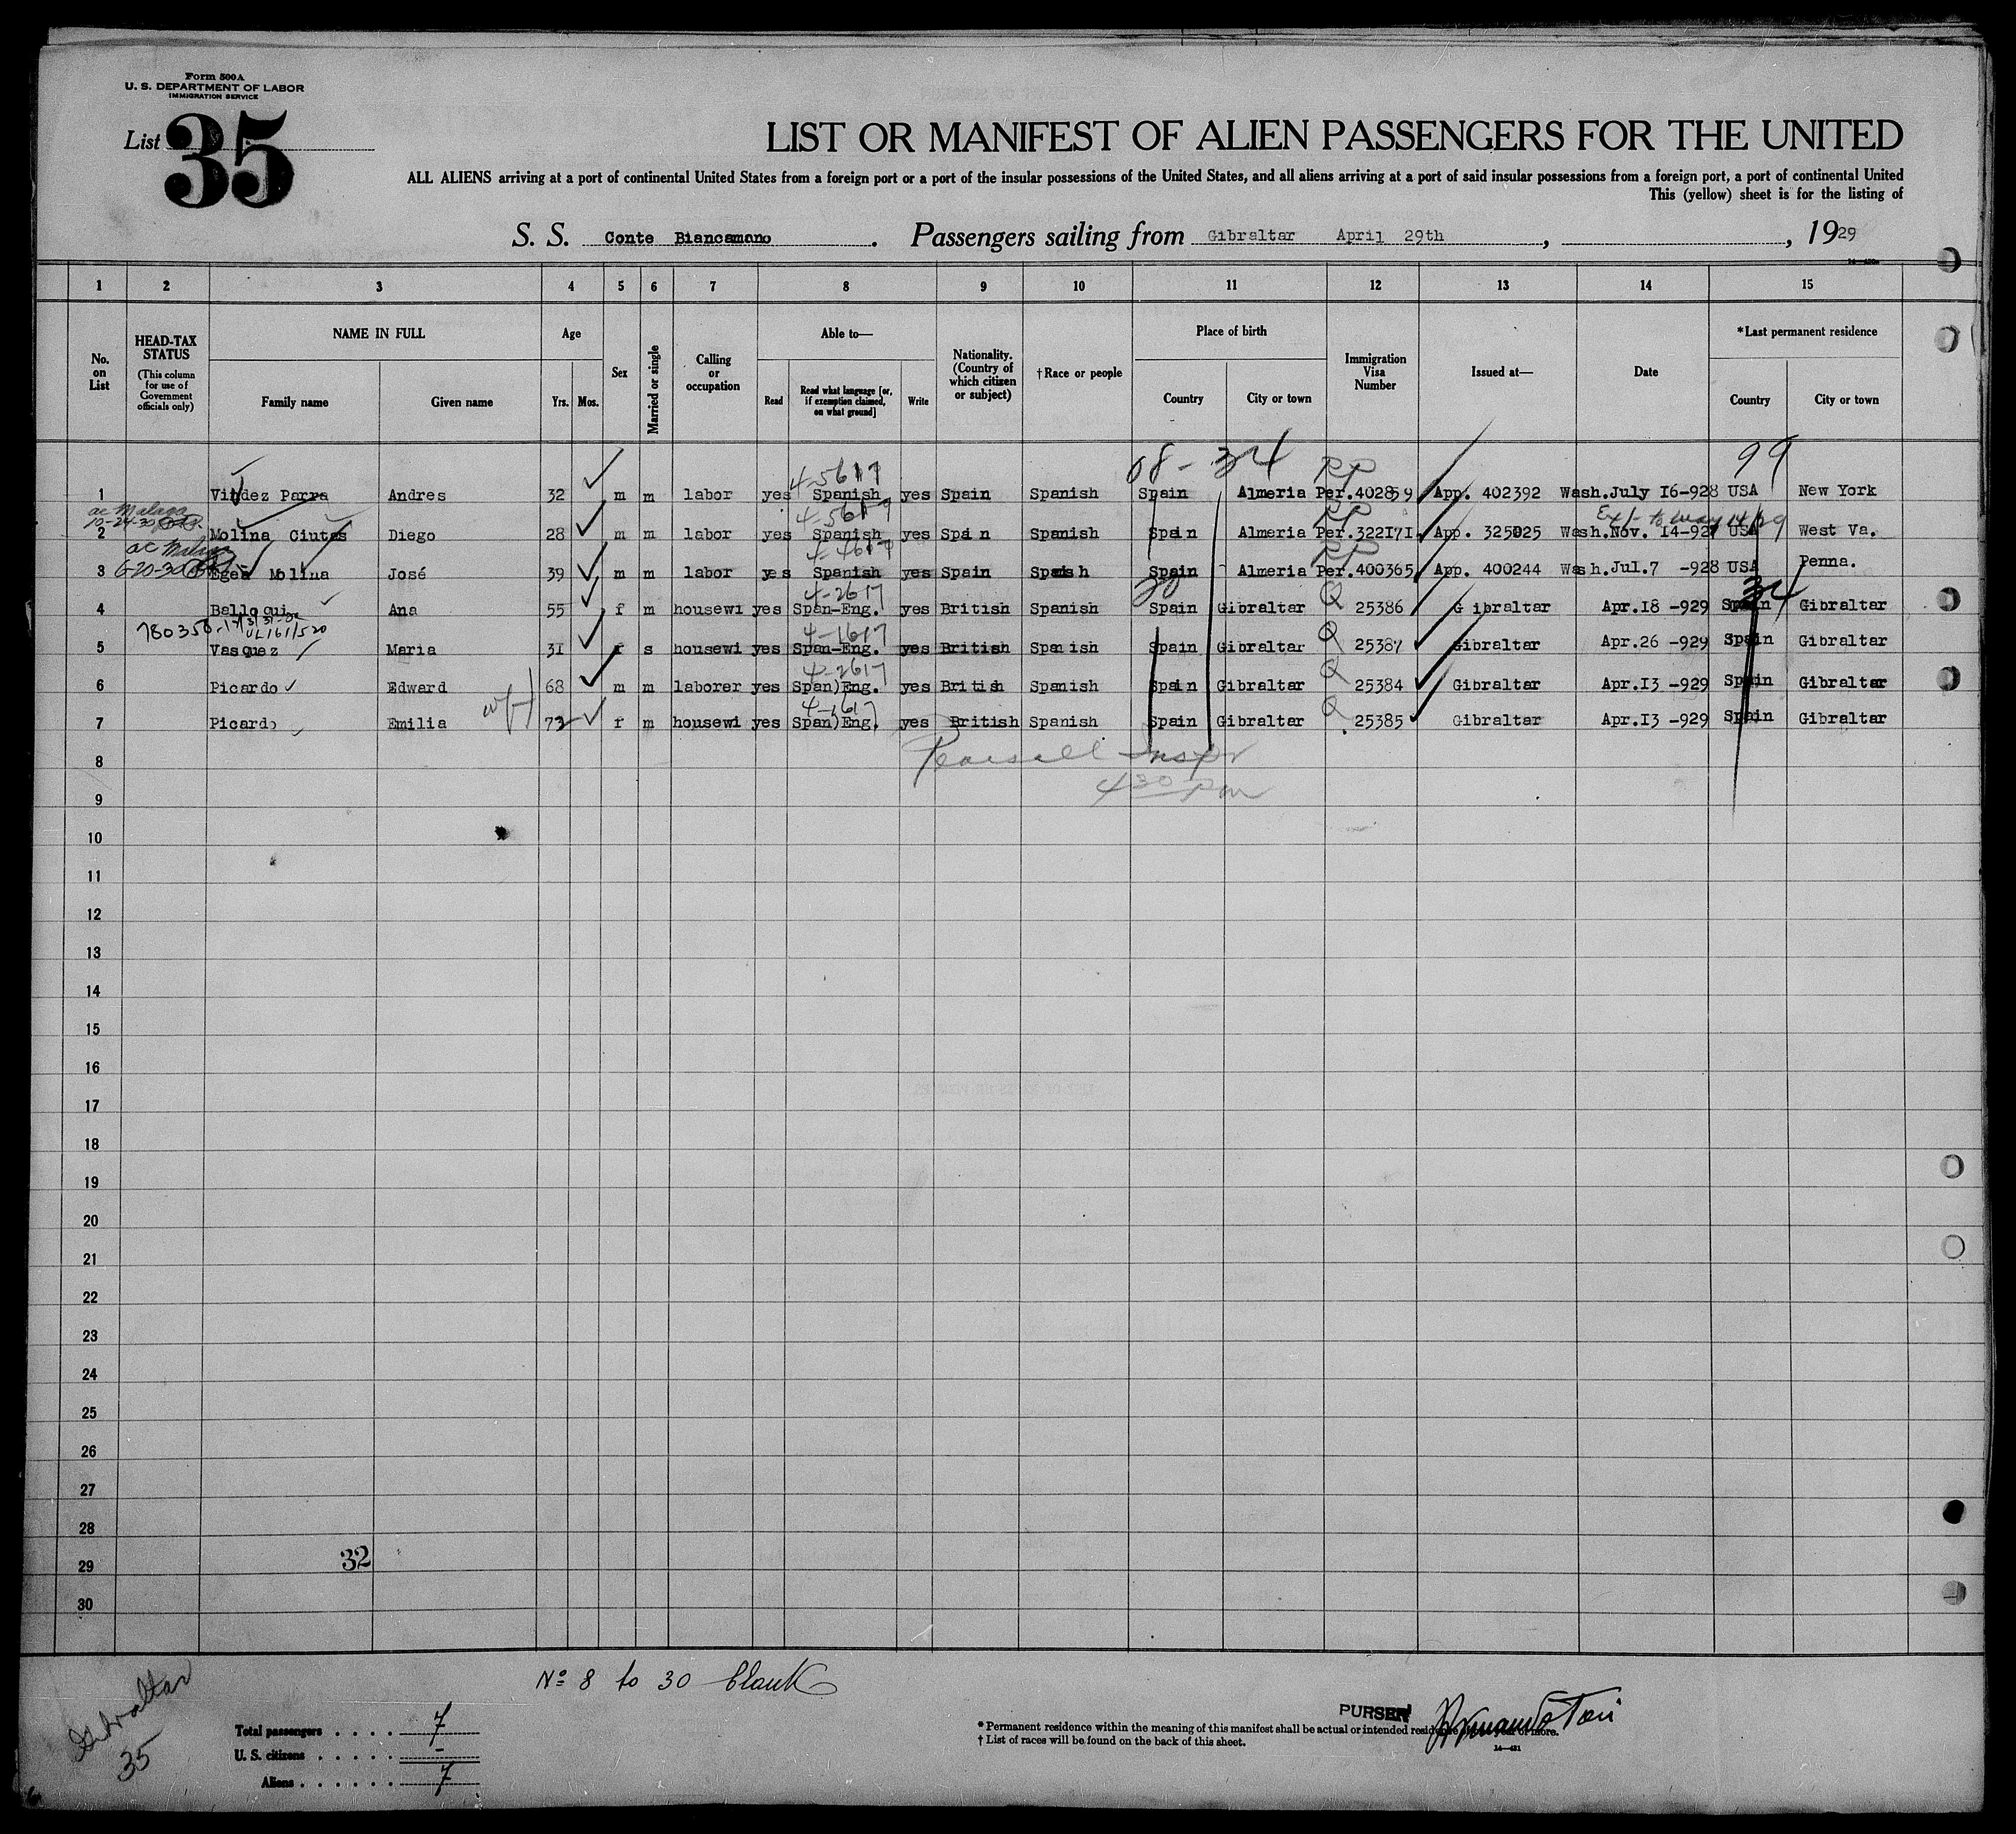 Form 500A
U. S. DEPARTMENT OF LABOR
IMMIGRATION SERVICE
List 35
LIST OR MANIFEST OF ALIEN PASSENGERS FOR THE UNITED
ALL ALIENS arriving at a port of continental United States from a foreign port or a port of the insular possessions of the United States, and all aliens arriving at a port of said insular possessions from a foreign port, a port of continental United
This (yellow) sheet is for the listing of
S. S. Conte Biancamano . Passengers sailing from Gibraltar April 29th , , 1929
1 2 3 4 5 6 7 8 9 10 11 12 13 14 15
No. on List
HEAD-TAX STATUS (This column for use of Government officials only)
NAME IN FULL Family name Given name
Age Yrs. Mos.
Sex
Married or single
Calling or occupation
Able to— Read Read what language [or, if exemption claimed, on what ground] Write
Nationality. (Country of which citizen or subject)
†Race or people
Place of birth Country City or town
Immigration Visa Number
Issued at—
Date
*Last permanent residence Country City or town
08-34 99
4-5617
1 Parra Andres 32 m m labor yes Spanish yes Spain Spanish Spain Almeria Per.402859 App. 402392 Wash.July 16-928 USA New York
ac Malaga
10-24-30
2 Molina Ciutas Diego 28 m m labor yes Spanish yes Spain Spanish Spain Almeria Per.322171 App. 325025 Wash.Nov. 14-927 USA West Va.
ac Malaga
6-20-30
4-4617
3 Egea Molina José 39 m m labor yes Spanish yes Spain Spanish Spain Almeria Per.400365 App. 400244 Wash.Jul.7 -928 USA Penna.
4-2617 20 Q 34
4 Balloqui Ana 55 f m housewi yes Span-Eng. yes British Spanish Spain Gibraltar 25386 Gibraltar Apr.18 -929 Spain Gibraltar
4-1617 Q
5 Vasquez Maria 31 f s housewi yes Span-Eng. yes British Spanish Spain Gibraltar 25387 Gibraltar Apr.26 -929 Spain Gibraltar
4-2617 Q
6 Picardo Edward 68 m m laborer yes Span)Eng. yes British Spanish Spain Gibraltar 25384 Gibraltar Apr.13 -929 Spain Gibraltar
4-1617 Q
7 Picardo Emilia 72 f m housewi yes Span)Eng. yes British Spanish Spain Gibraltar 25385 Gibraltar Apr.13 -929 Spain Gibraltar
Pearsall Inspr
8
4 30 Pm
9
10
11
12
13
14
15
16
17
18
19
20
21
22
23
24
25
26
27
28
32
29
30
Nº 8 to 30 blank
Gibraltar
35
Total passengers . . . . 7
U. S. citizens . . . . . -
Aliens . . . . . . 7
PURSER
* Permanent residence within the meaning of this manifest shall be actual or intended residence of one year or more.
† List of races will be found on the back of this sheet.
14—431